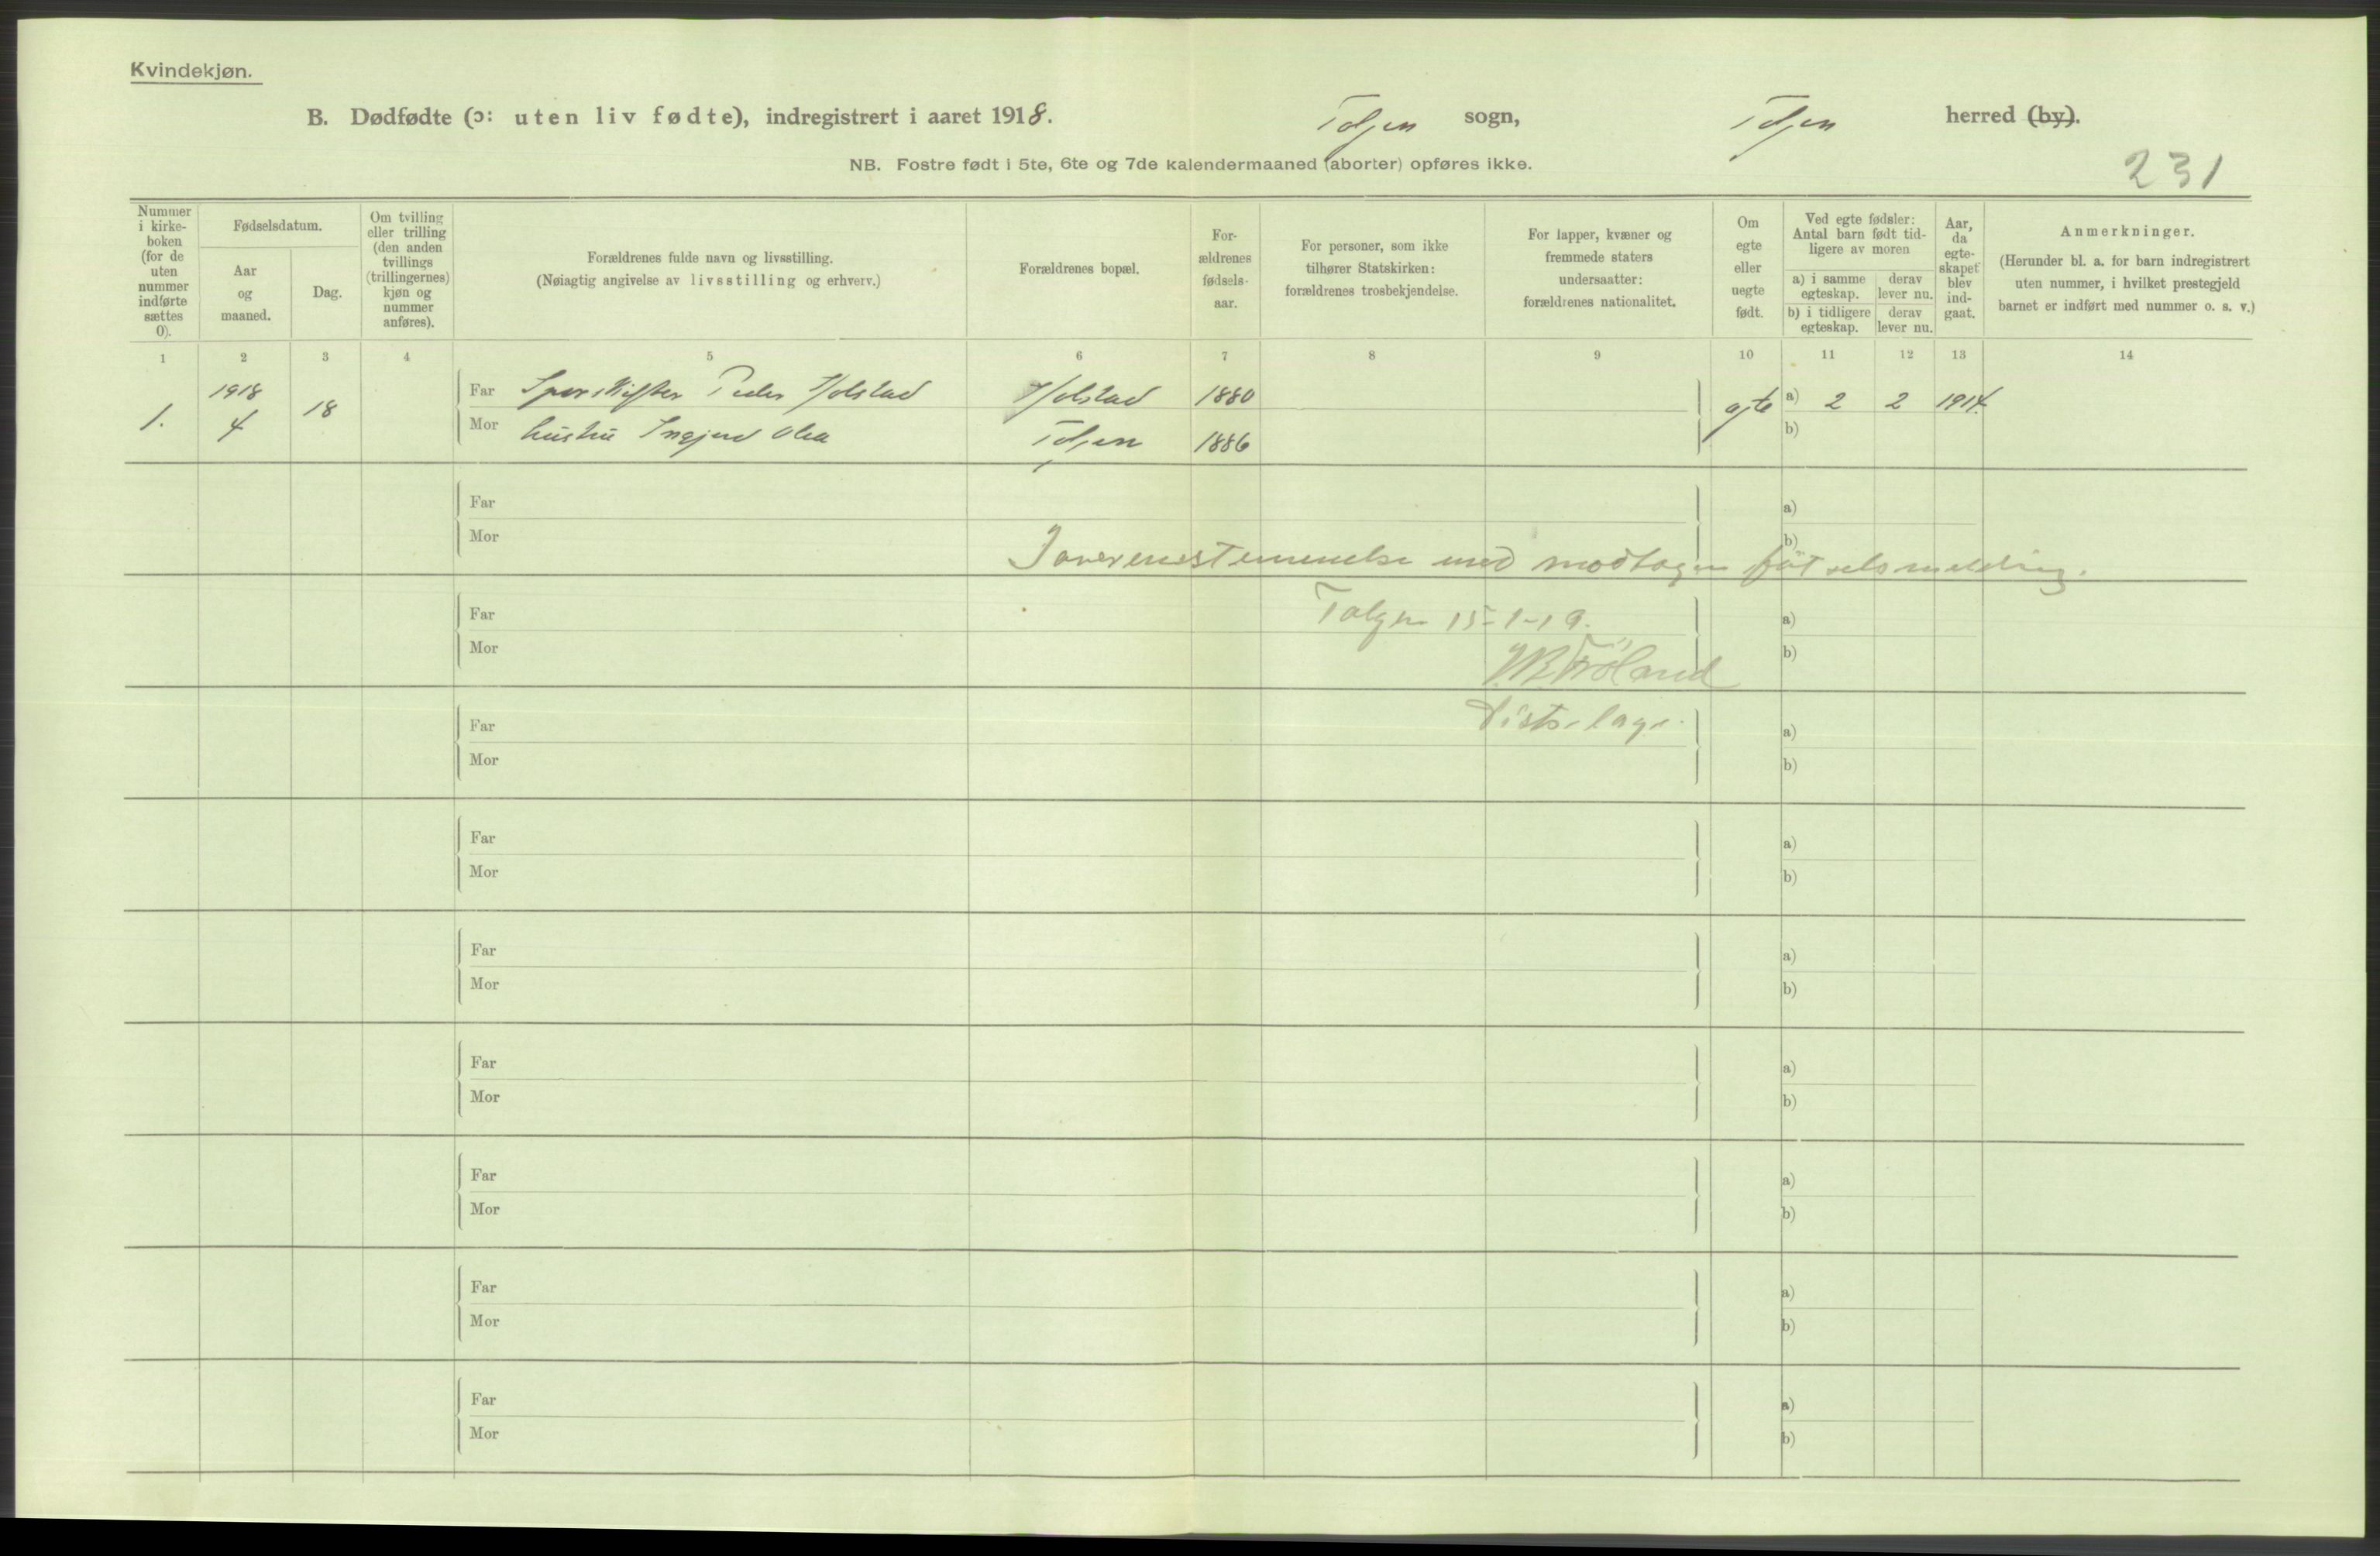 Kvindekjøn.
B. Dødfødte (ɔ: uten liv fødte), indregistrert i aaret 1918. Tolgen sogn, Tolgen herred (by).
NB. Fostre født i 5te, 6te og 7de kalendermaaned (aborter) opføres ikke.
231
Nummer
i kirke-
boken
(for de
uten
nummer
indførte
sættes
0).
Fødselsdatum.
Aar
og
maaned.
Dag.
Om tvilling
eller trilling
(den anden
tvillings
(trillingernes)
kjøn og
nummer
anføres).
Forældrenes fulde navn og livsstilling.
(Nøiagtig angivelse av livsstilling og erhverv.)
Forældrenes bopæl.
For-
ældrenes
fødsels-
aar.
For personer, som ikke
tilhører Statskirken:
forældrenes trosbekjendelse.
For lapper, kvæner og
fremmede staters
undersaatter:
forældrenes nationalitet.
Om
egte
eller
uegte
født.
Ved egte fødsler:
Antal barn født tid-
ligere av moren
a) i samme
egteskap.
derav
lever nu.
b) i tidligere
egteskap.
derav
lever nu.
Aar,
da
egte-
skapet
blev
ind-
gaat.
Anmerkninger.
(Herunder bl. a. for barn indregistrert
uten nummer, i hvilket prestegjeld
barnet er indført med nummer o. s. v.)
1 2 3 4 5 6 7 8 9 10 11 12 13 14
1. 1918 4 18
Far Sporskifter Peder Holstad Holstad 1880 egte a) 2 2 1914.
Mor hustru Ingjerd Olea Tolgen 1886 b)
Far a)
Mor b)
I overensstemmelse med modtagen fødselsmelding.
Far Tolgen 15-1-19. a)
Mor b)
Far a)
Mor b)
Far a)
Mor b)
Far a)
Mor b)
Far a)
Mor b)
Far a)
Mor b)
Far a)
Mor b)
Far a)
Mor b)